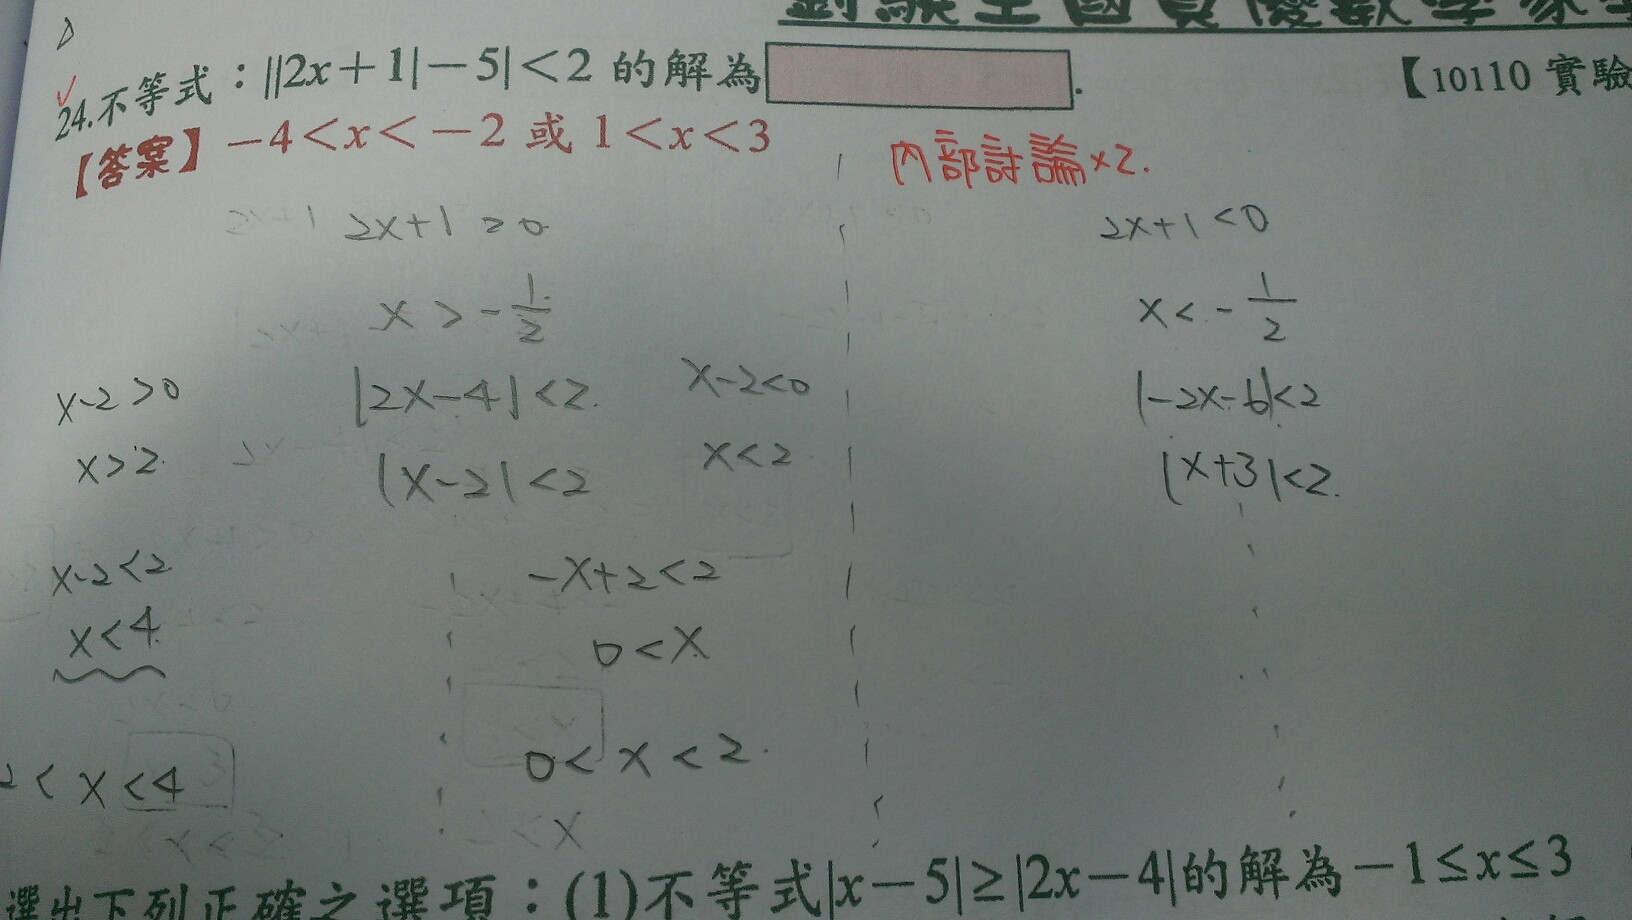 24.不等式：||2x+1|-5|<2 的解為 .
【10110 實驗
【答案】-4<x<-2 或 1<x<3
內部討論×2.
2x+1 ≥0
2x+1 <0
x > -1/2
x < -1/2
x-2>0
|2x-4|<2.
x-2<0
|-2x-6|<2
x>2.
|x-2|<2
x<2
|x+3|<2.
x-2<2
-x+2<2
x<4
0<x
0<x<2.
< x<4
選出下列正確之選項：(1)不等式|x-5|≥|2x-4|的解為-1≤x≤3